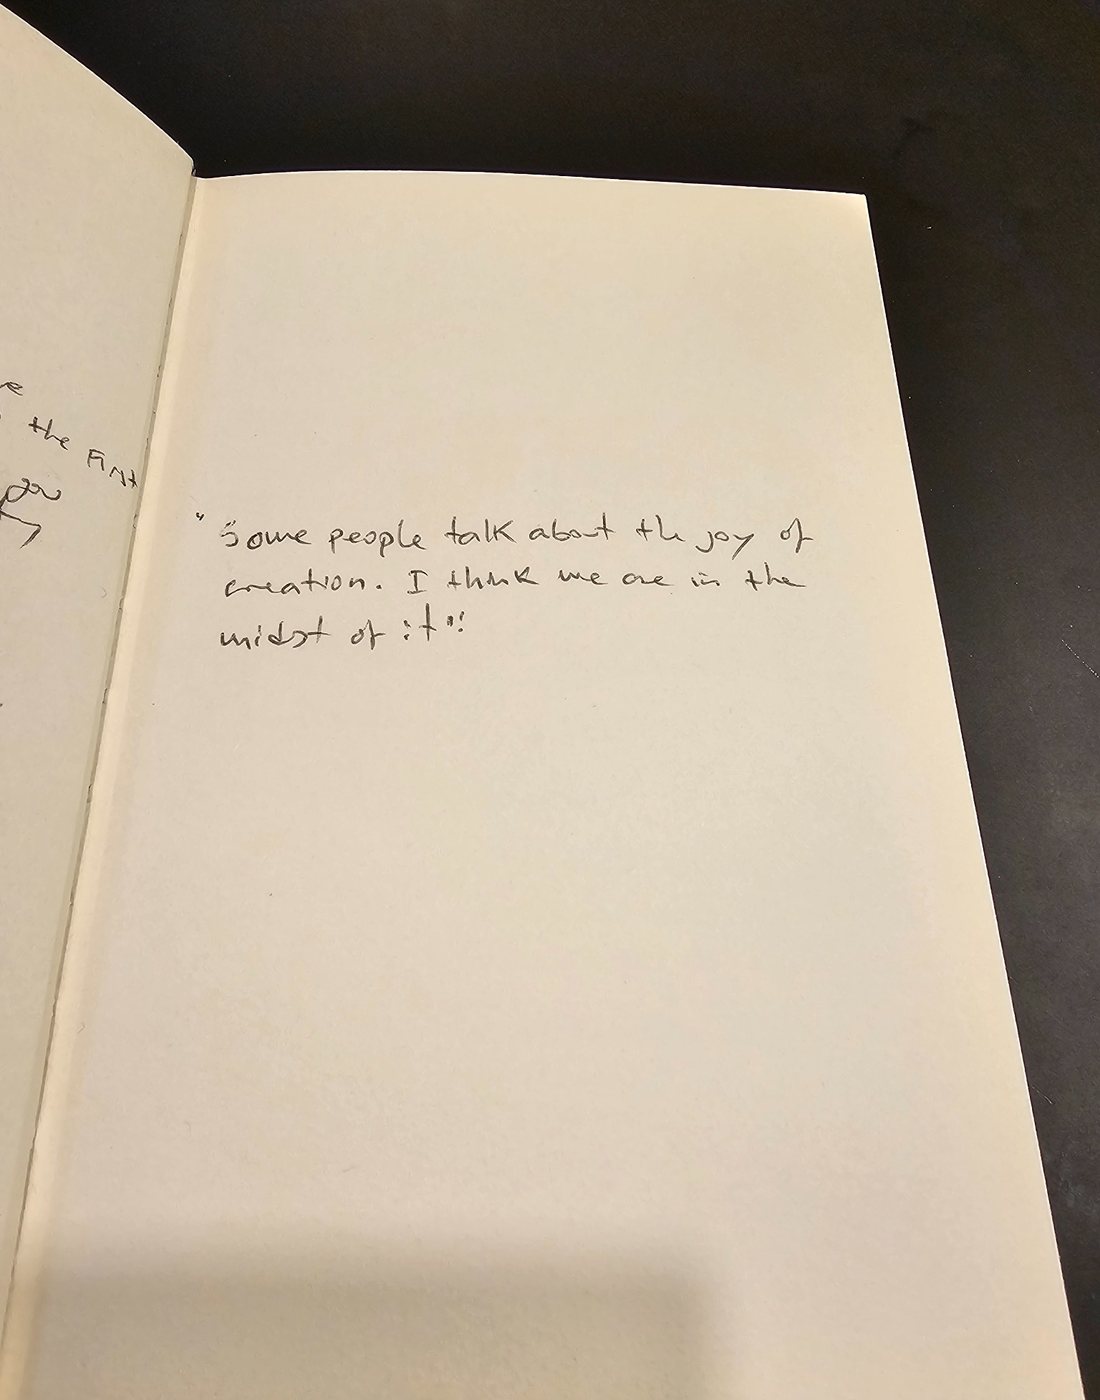 e
the First
"Some people talk about the joy of
creation. I think we are in the
midst of it".